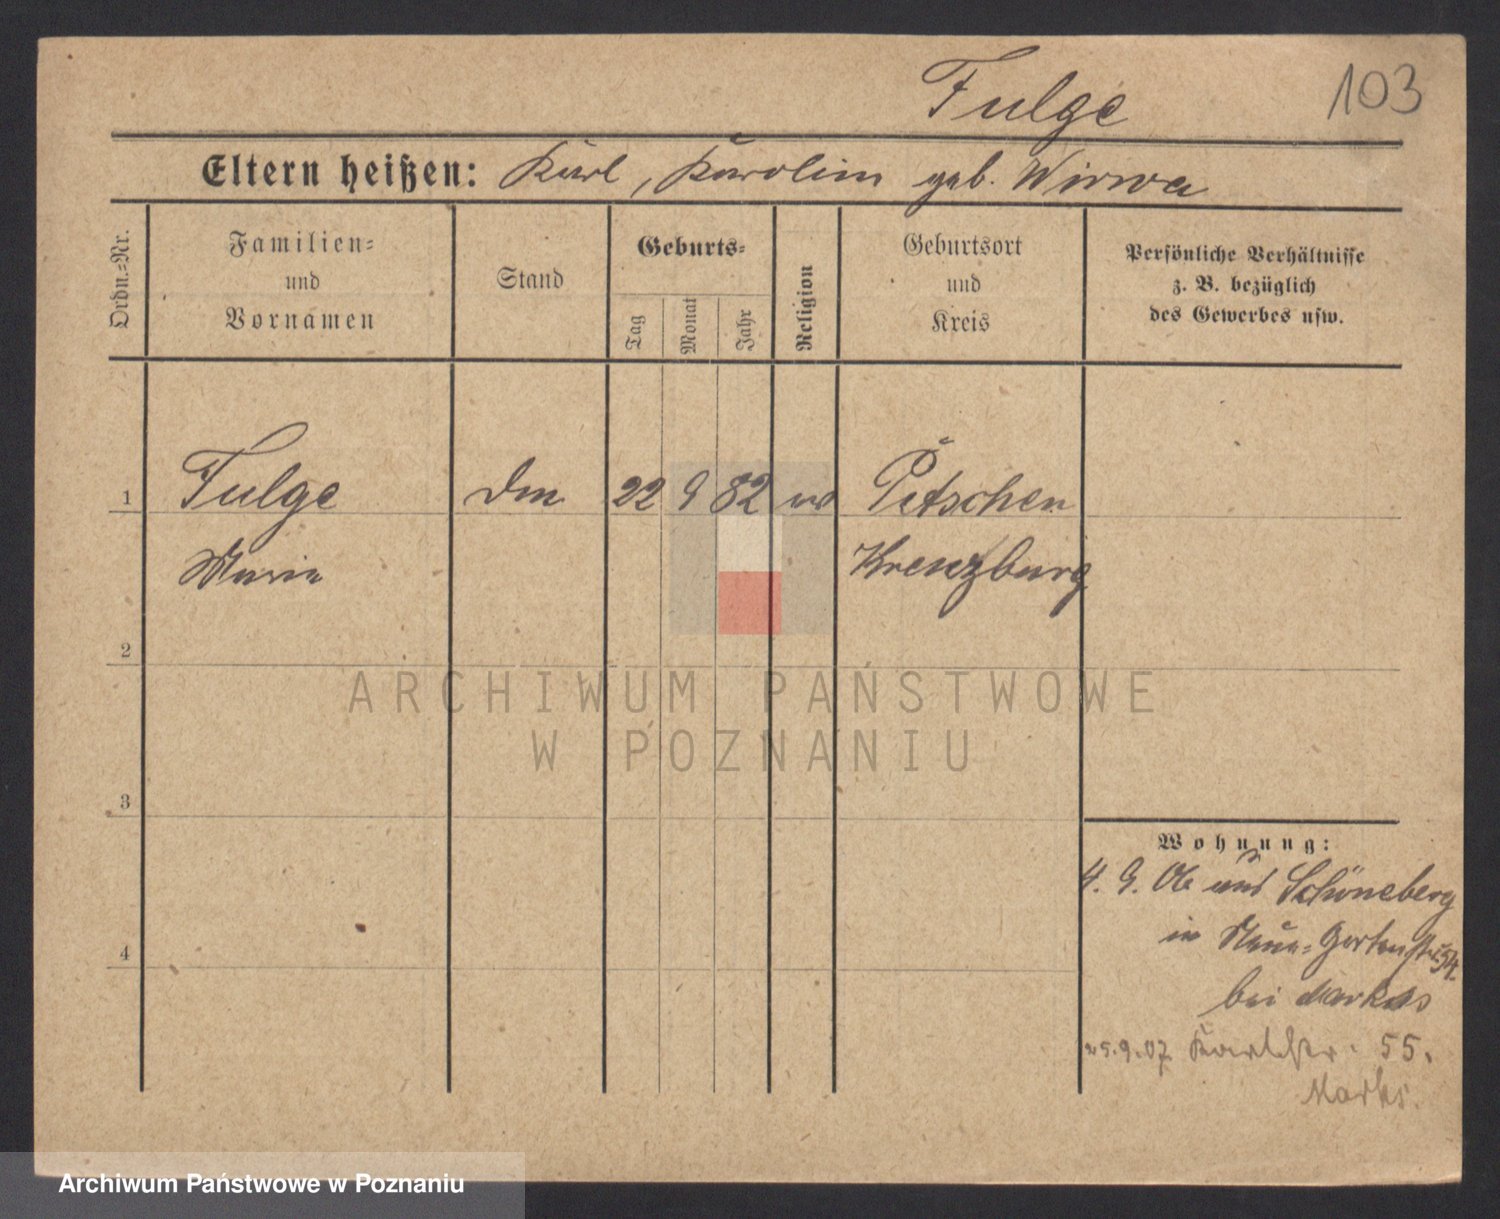 Fulge 103
Eltern heißen: Karl, Karolin geb. Wirwa
Ordn.-Nr.
Familien=
und
Vornamen
Stand
Geburts=
Tag Monat Jahr
Religion
Geburtsort
und
Kreis
Persönliche Verhältnisse
z. B. bezüglich
des Gewerbes usw.
1 Fulge 22 9 82 Pitschen
Marie Kreuzburg
2
ARCHIWUM PAŃSTWOWE
W POZNANIU
3
Wohnung:
4. 9. 06 aus Schöneberg
in Neue-Gartenstr. 54.
4
bei Markus
25.9.07. Karlstr. 55.
Marks.
Archiwum Państwowe w Poznaniu